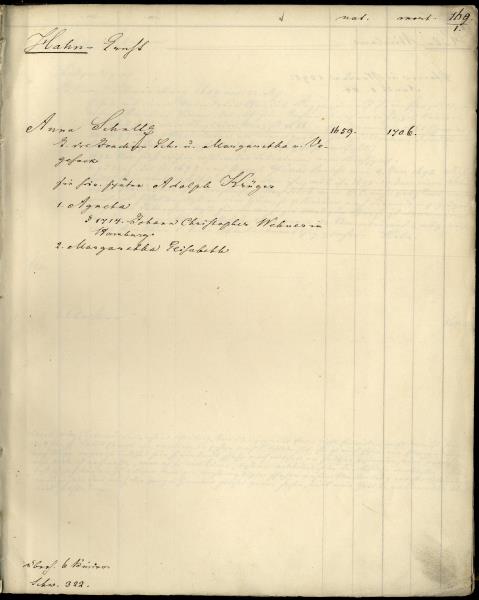 nat. mort. 169
1.
Hahn-Gruft
Anna Schultz 1659. 1706.
T. des Joachim Sch. u. Margaretha v. Ve-
gesack
sie hei. später Adolph Krüger
1. Agneta
1714. Johann Christopher Wehner in
Hamburg.
2. Margaretha Elisabeth
6 Kinder
Schr. 322.